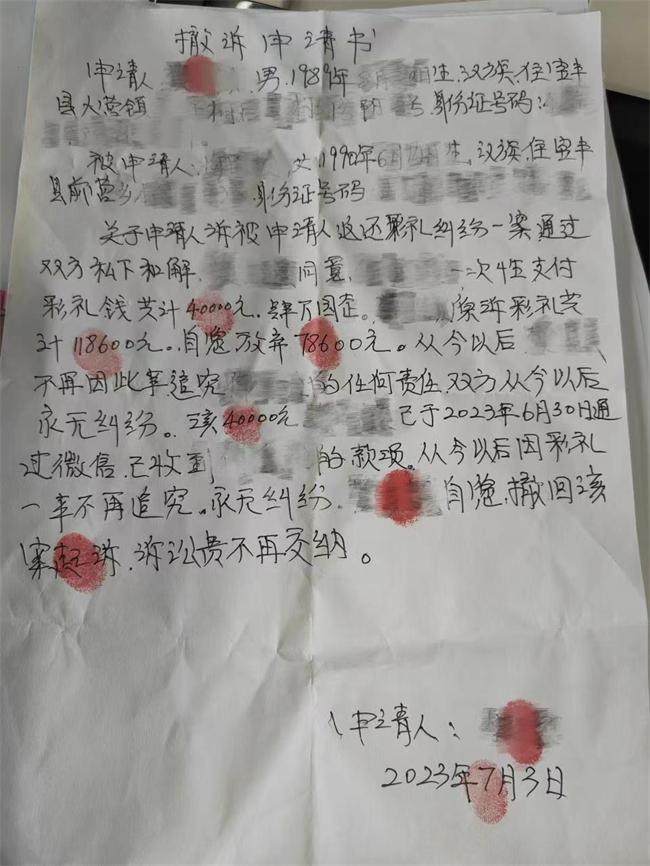 撤诉申请书
申请人 男,1989年 生,汉族,住宝丰
县大营镇 村 号,身份证号码:
被申请人: 女,1990年6月 生,汉族,住宝丰
县前营乡 身份证号码
关于申请人诉被申请人返还彩礼纠纷一案通过
双方私下和解. 同意, 一次性支付
彩礼钱共计40000元,肆万圆正。 原诉彩礼共
计118600元。自愿放弃78600元。从今以后
不再因此事追究 的任何责任,双方从今以后
永无纠纷。该40000元 已于2023年6月30日通
过微信,已收到 的款项。从今以后因彩礼
一事不再追究。永无纠纷. 自愿,撤回该
案起诉,诉讼费不再交纳。
申请人:
2023年7月3日